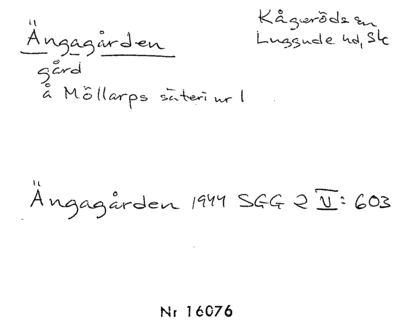 Ängagården
Kågeröds sn
Luggude hd, Sk
gård
å Möllarps säteri nr 1
Ängagården 1944 SGG 2 V: 603
Nr 16076